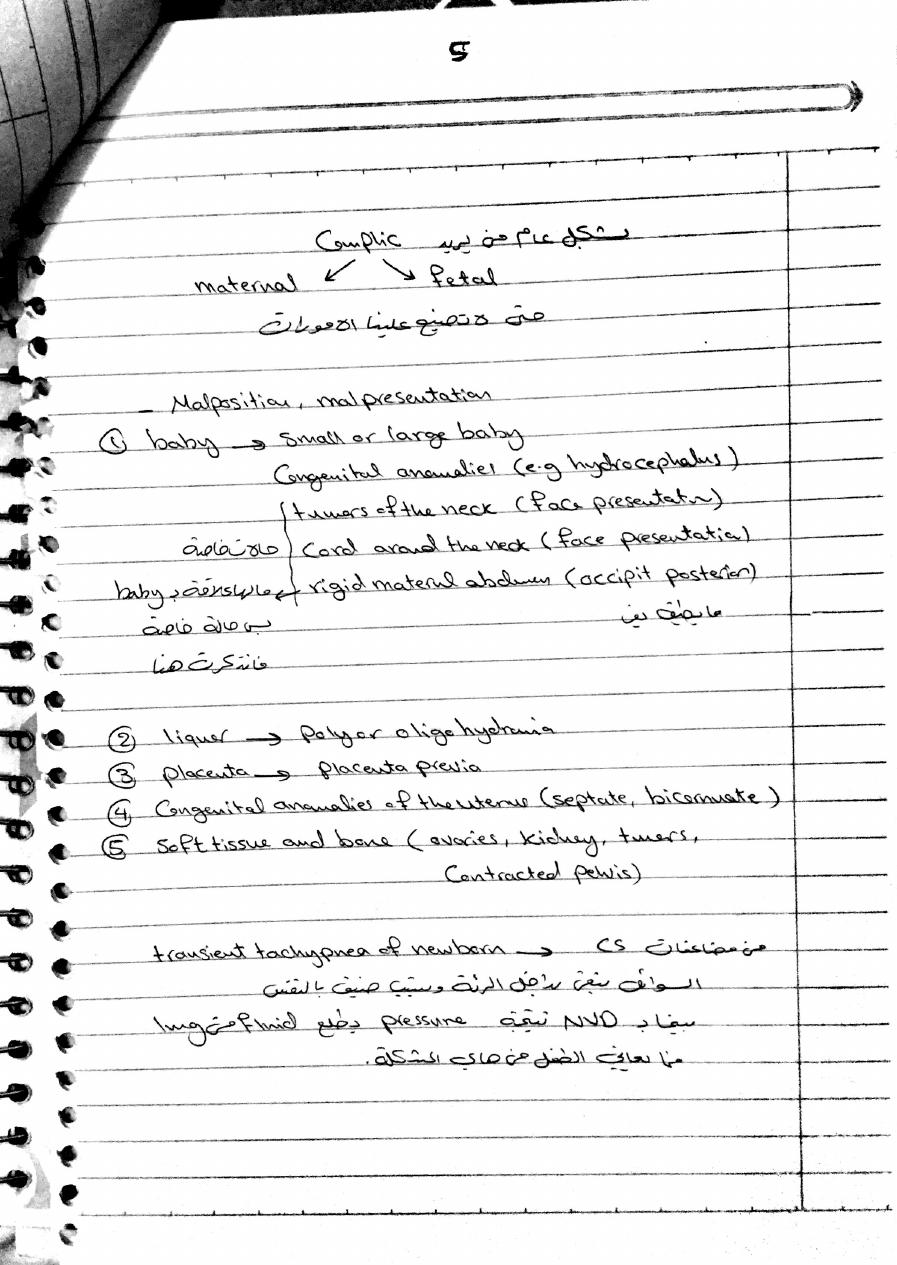 5
بشكل عام من نريد Complic
maternal ↙ ↘ fetal
حتى لا تضيع علينا الامورات
- Malposition, malpresentation
① baby → Small or large baby
Congenital anomalies (e.g hydrocephalus)
tumors of the neck (face presentatn)
حالات خاصة Cord around the neck (face presentation)
مالها علاقة بـ baby ← rigid maternal abdomen (occipit posterior)
بس حالة خاصة ما يطيه
فانذكرت هنا
② liquer → Poly or oligohydramia
③ placenta → placenta previa
④ Congenital anomalies of the uterus (septate, bicornuate)
⑤ Soft tissue and bone (ovaries, kidney, tumors,
Contracted pelvis)
transient tachypnea of newborn → CS من مضاعفات
السوائل تبقى بداخل الرئة وتسبب ضيق بالتنفس
بينما بـ NVD نتيجة pressure يطلع fluid من lung
فما يعاني الطفل من هاي المشكلة.